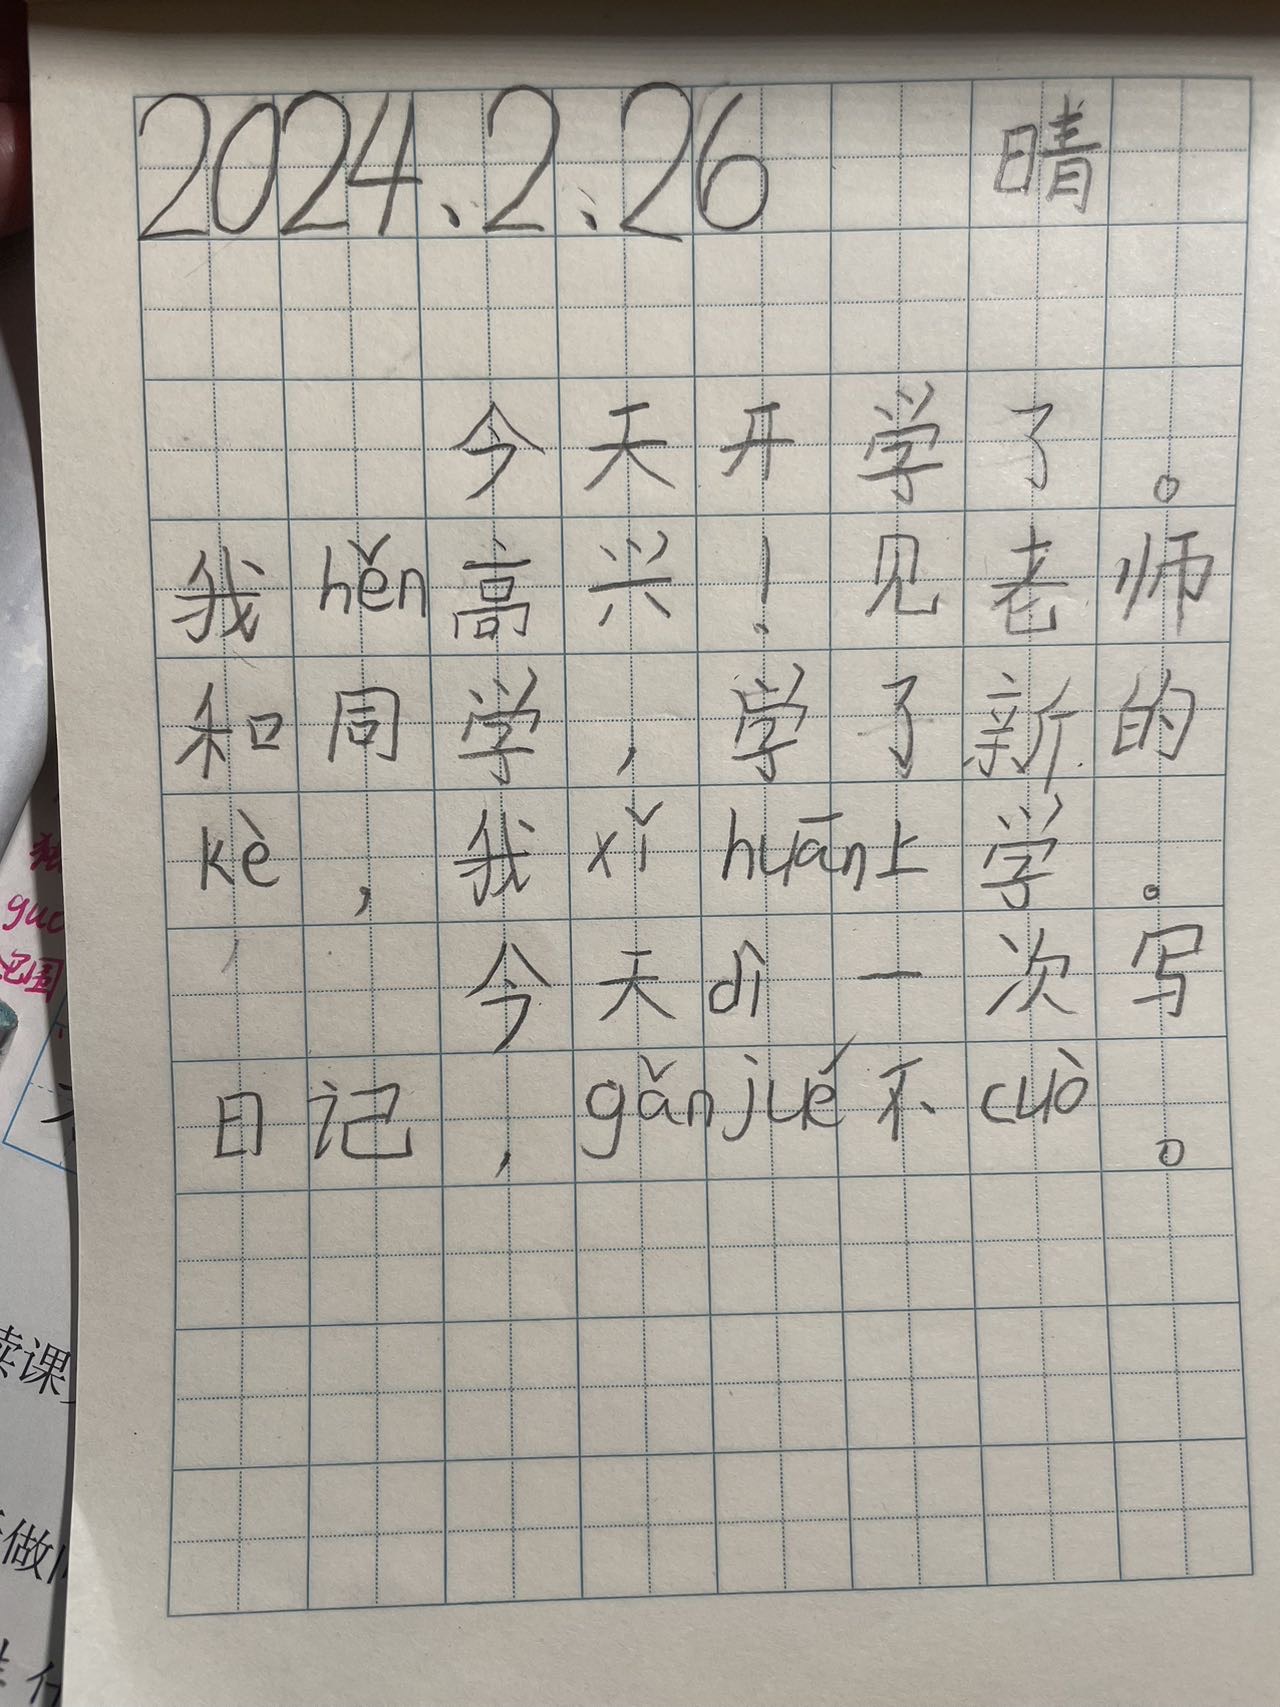 2024.2.26 晴
今天开学了。
我hěn高兴！见老师
和同学，学了新的
kè，我xǐ huān上学。
今天dì一次写
日记，gǎnjué不cuò。
guo
读课
做